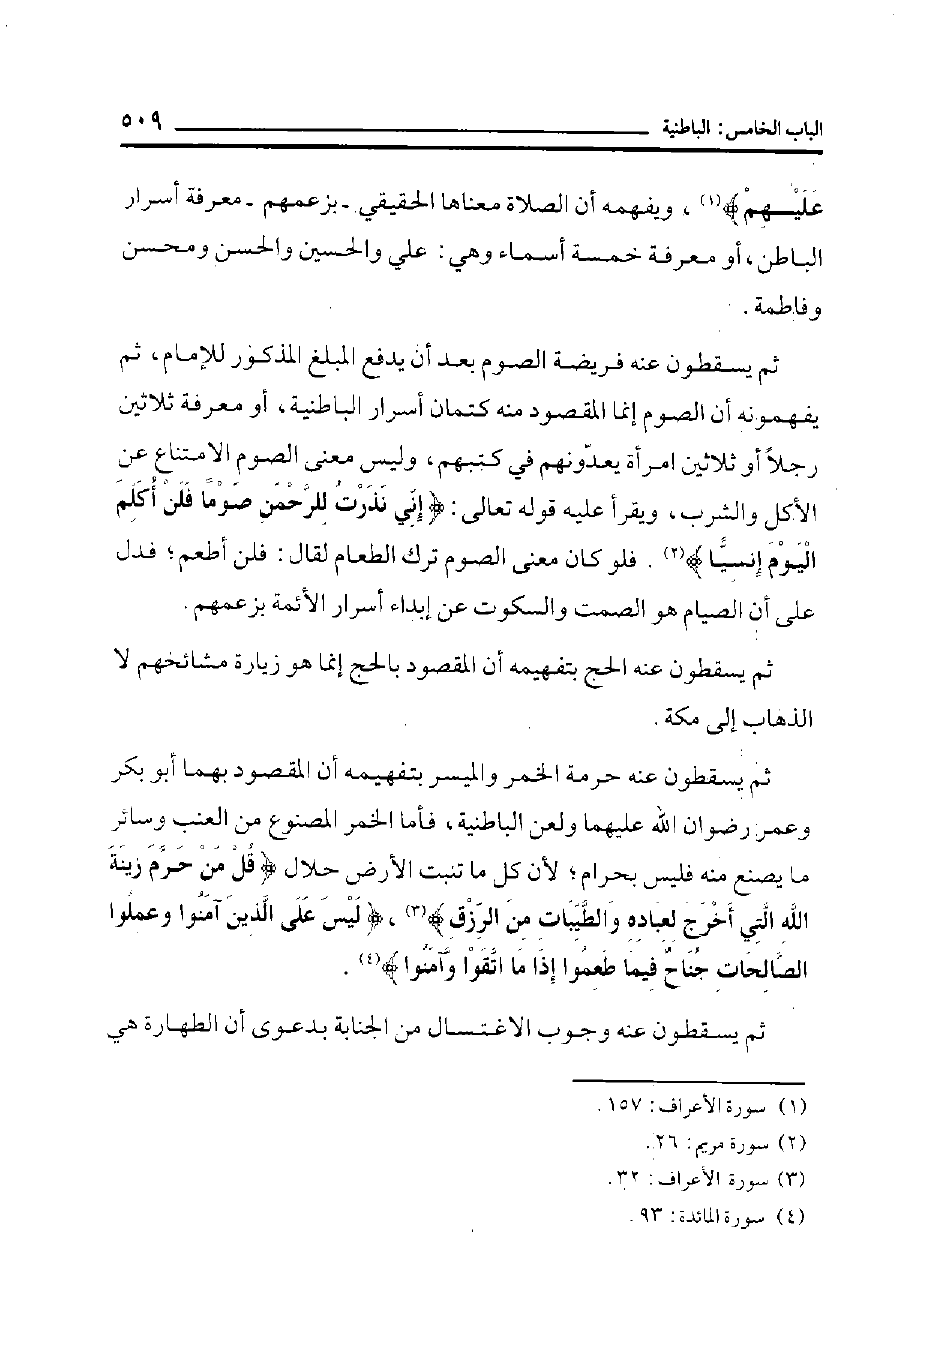 الباب الخامس: الباطنية ٥٠٩
عَلَيْهِمْ﴾(١)، ويفهمه أن الصلاة معناها الحقيقي - بزعمهم - معرفة أسرار
الباطن، أو معرفة خمسة أسماء وهي: علي والحسين والحسن ومحسن
وفاطمة.
ثم يسقطون عنه فريضة الصوم بعد أن يدفع المبلغ المذكور للإمام، ثم
يفهمونه أن الصوم إنما المقصود منه كتمان أسرار الباطنية، أو معرفة ثلاثين
رجلاً أو ثلاثين امرأة يعدّونهم في كتبهم، وليس معنى الصوم الامتناع عن
الأكل والشرب، ويقرأ عليه قوله تعالى: ﴿إِنِّي نَذَرْتُ لِلرَّحْمَنِ صَوْمًا فَلَنْ أُكَلِّمَ
الْيَوْمَ إِنسِيًّا﴾(٢). فلو كان معنى الصوم ترك الطعام لقال: فلن أطعم؛ فدل
على أن الصيام هو الصمت والسكوت عن إبداء أسرار الأئمة بزعمهم.
ثم يسقطون عنه الحج بتفهيمه أن المقصود بالحج إنما هو زيارة مشائخهم لا
الذهاب إلى مكة.
ثم يسقطون عنه حرمة الخمر والميسر بتفهيمه أن المقصود بهما أبو بكر
وعمر رضوان الله عليهما ولعن الباطنية، فأما الخمر المصنوع من العنب وسائر
ما يصنع منه فليس بحرام؛ لأن كل ما تنبت الأرض حلال ﴿قُلْ مَنْ حَرَّمَ زِينَةَ
اللَّهِ الَّتِي أَخْرَجَ لِعِبَادِهِ وَالطَّيِّبَاتِ مِنَ الرِّزْقِ﴾(٣)، ﴿لَيْسَ عَلَى الَّذِينَ آمَنُوا وَعَمِلُوا
الصَّالِحَاتِ جُنَاحٌ فِيمَا طَعِمُوا إِذَا مَا اتَّقَوْا وَآمَنُوا﴾(٤).
ثم يسقطون عنه وجوب الاغتسال من الجنابة بدعوى أن الطهارة هي
(١) سورة الأعراف: ١٥٧.
(٢) سورة مريم: ٢٦.
(٣) سورة الأعراف: ٣٢.
(٤) سورة المائدة: ٩٣.